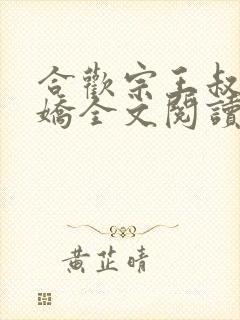 合歡宗王叔
嬌全文閱讀
黃芷晴